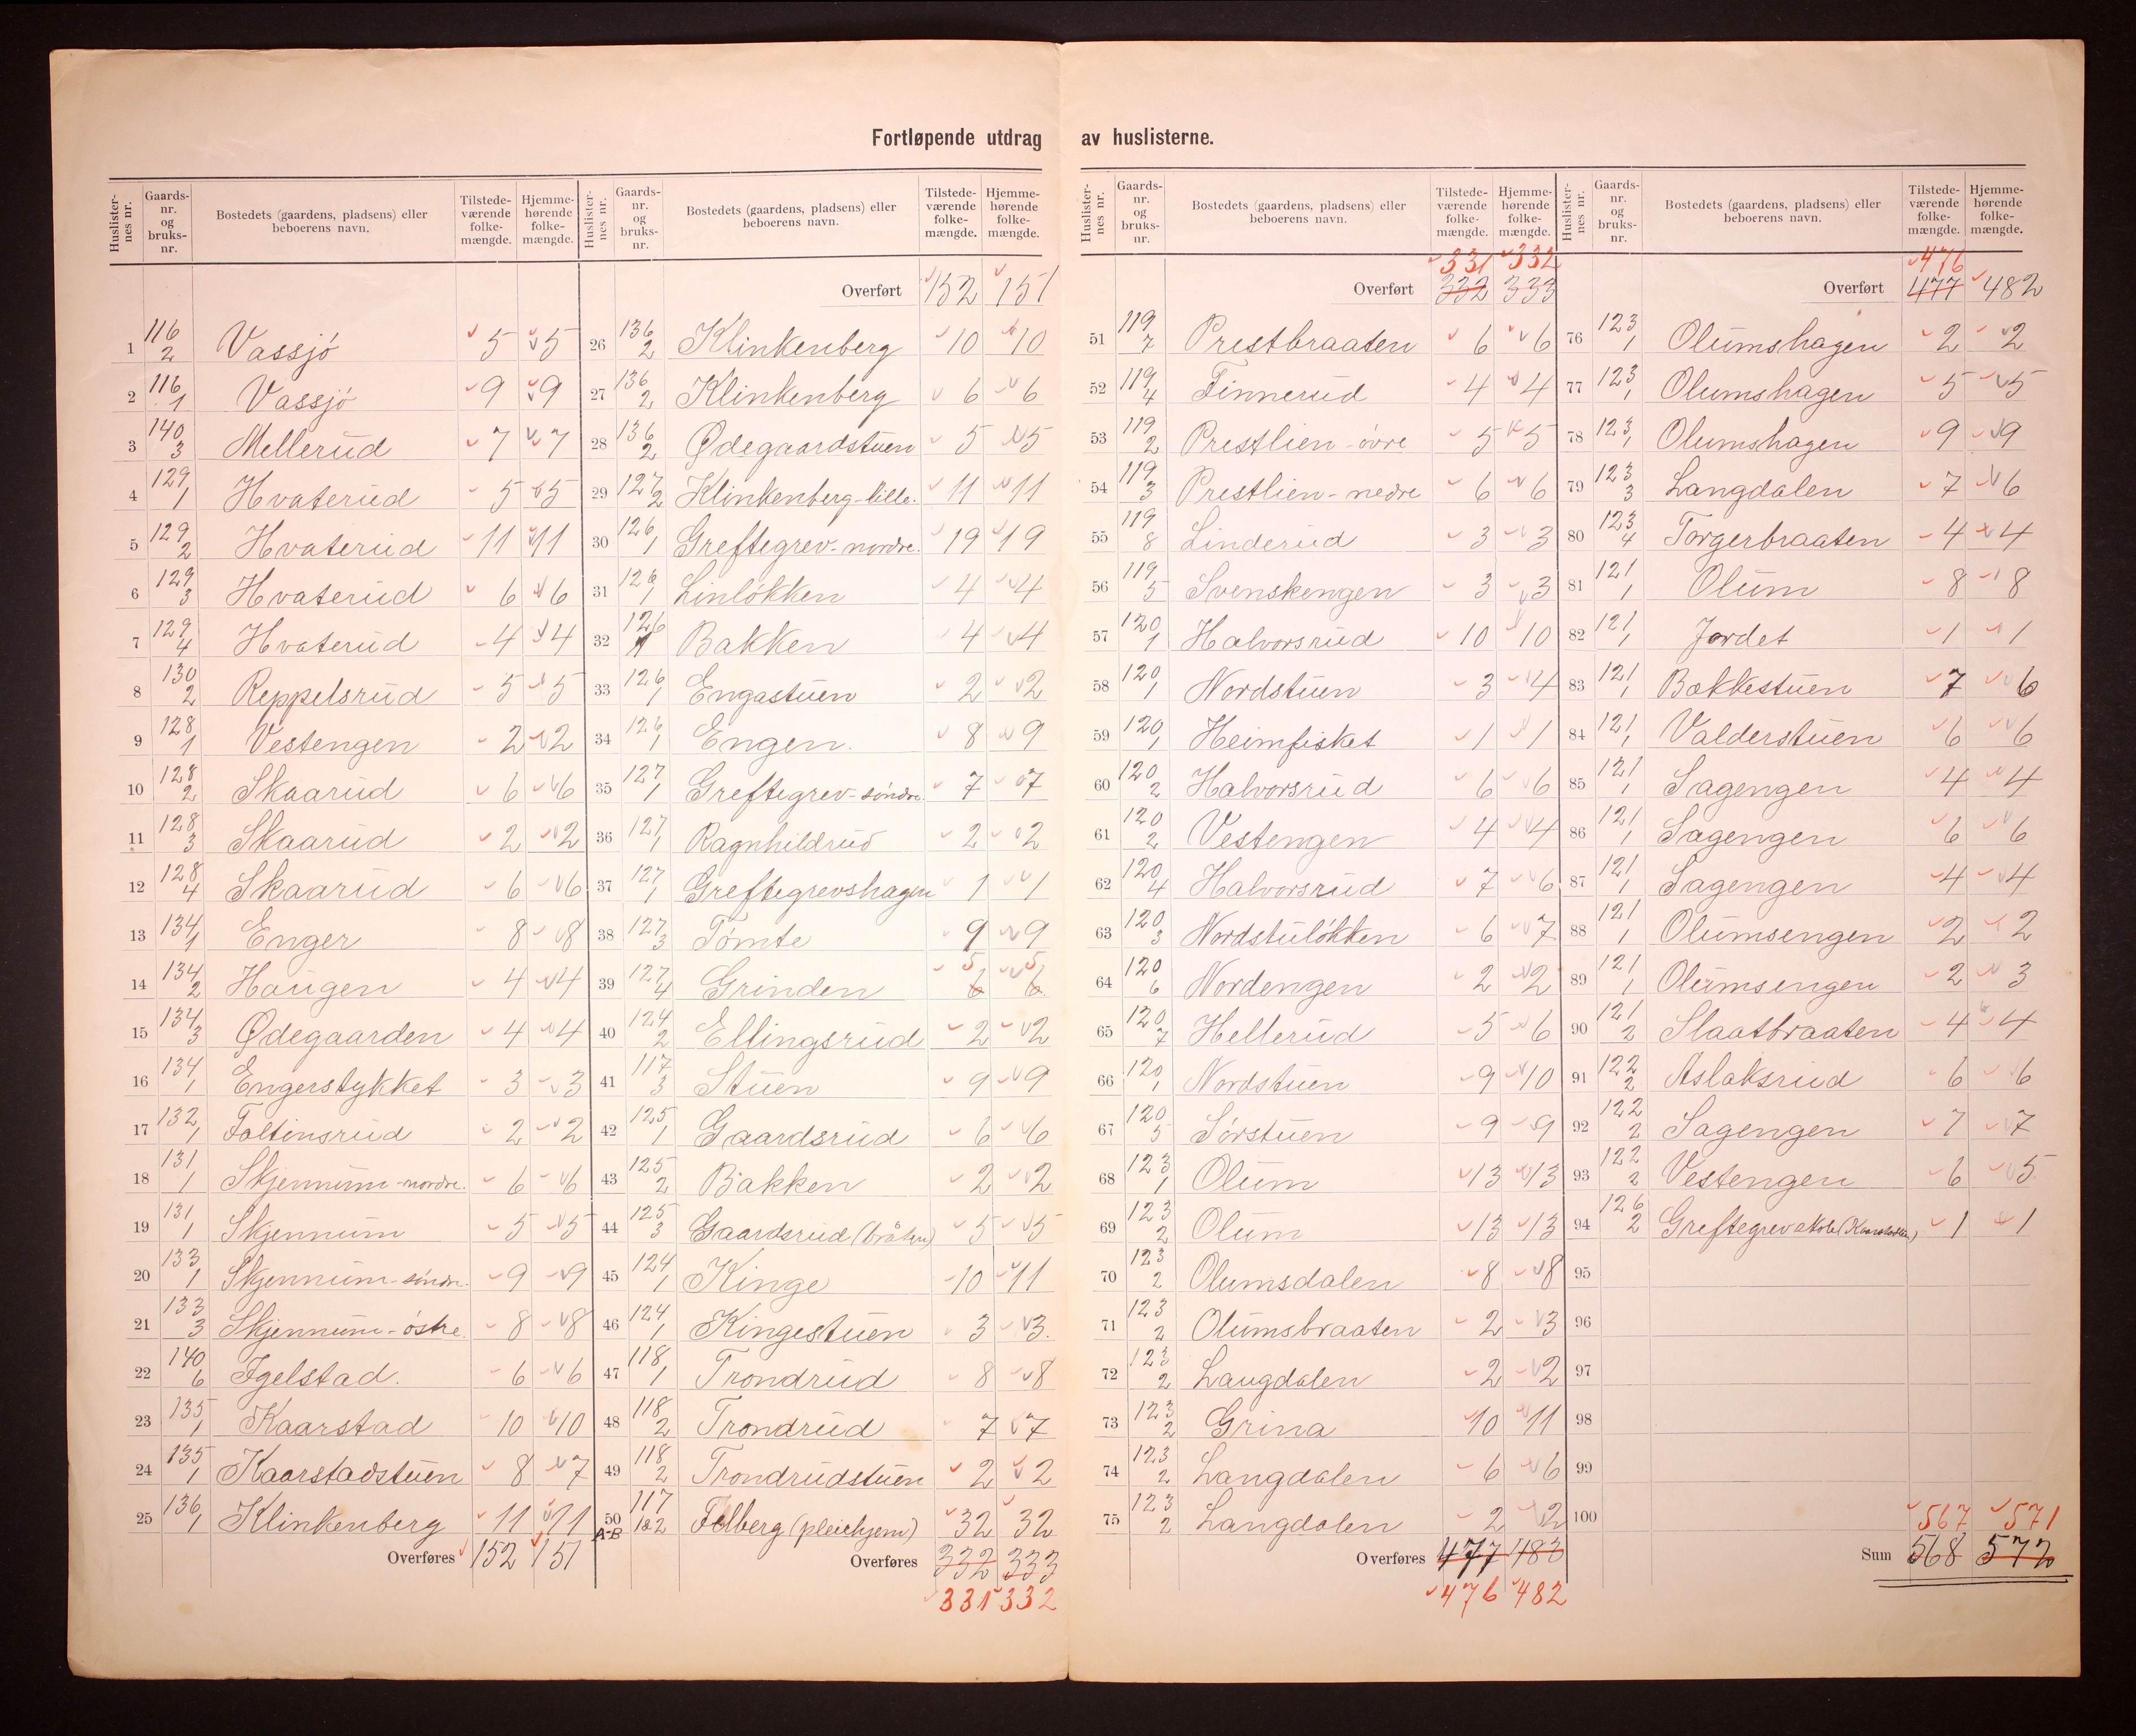 Fortløpende utdrag av huslisterne.
Huslisternes nr. Gaards-nr. og bruks-nr. Bostedets (gaardens, pladsens) eller beboerens navn. Tilstedeværende folkemængde. Hjemmehørende folkemængde.
1 116/2 Vassjó 5 5
2 116/1 Vassjó 9 9
3 140/3 Mellerud 7 7
4 129/1 Hvaterud 5 5
5 129/2 Hvaterud 11 11
6 129/3 Hvaterud 6 6
7 129/4 Hvaterud 4 4
8 130/2 Reppelsrud 5 5
9 128/1 Vestengen 2 2
10 128/2 Skaarud 6 6
11 128/3 Skaarud 2 2
12 128/4 Skaarud 6 6
13 134/1 Enger 8 8
14 134/2 Haugen 4 4
15 134/3 Ødegaarden 4 4
16 134/1 Engerstykket 3 3
17 132/1 Foltinsrud 2 2
18 131/1 Skjennum-nordre. 6 6
19 131/1 Skjennum 5 5
20 133/1 Skjennum-søndre. 9 9
21 133/3 Skjennum-östre 8 8
22 140/6 Igelstad. 6 6
23 135/1 Kaarstad 10 10
24 135/1 Kaarstadstuen 8 7
25 136/1 Klinkenberg 11 11
Overføres 152 151
Huslisternes nr. Gaards-nr. og bruks-nr. Bostedets (gaardens, pladsens) eller beboerens navn. Tilstedeværende folkemængde. Hjemmehørende folkemængde.
Overført 152 151
26 136/2 Klinkenberg 10 10
27 136/2 Klinkenberg 6 6
28 136/2 Ødegaardstuen 5 5
29 127/2 Klinkenberg-lille. 11 11
30 126/1 Greftegrev-nordre. 19 19
31 126/1 Linlökken 4 4
32 126/1 Bakken 4 4
33 126/1 Engastuen 2 2
34 126/1 Engen. 8 9
35 127/1 Greftegrev-søndre. 7 7
36 127/1 Ragnhildrud 2 2
37 127/1 Greftegrevshagen 1 1
38 127/3 Tömte 9 9
5 5
39 127/4 Grinden 6 6
40 124/2 Ellingsrud 2 2
41 117/3 Stuen 9 9
42 125/1 Gaardsrud 6 6
43 125/2 Bakken 2 2
44 125/3 Gaardsrud (bråten) 5 5
45 124/1 Kinge 10 11
46 124/1 Kingestuen 3 3.
47 118/1 Trondrud 8 8
48 118/2 Trondrud 7 7
49 118/2 Trondrudstuen 2 2
50 A-B 117/1&2 Felberg (pleiehjem) 32 32
Overføres 332 333
331 332
Huslisternes nr. Gaards-nr. og bruks-nr. Bostedets (gaardens, pladsens) eller beboerens navn. Tilstedeværende folkemængde. Hjemmehørende folkemængde.
331 332
Overført 332 333
51 119/7 Prestbraaten 6 6
52 119/4 Finnerud 4 4
53 119/2 Prestlien-övre 5 5
54 119/3 Prestlien-nedre 6 6
55 119/8 Linderud 3 3
56 119/5 Svenskengen 3 3
57 120/1 Halvorsrud 10 10
58 120/1 Nordstuen 3 4
59 120/1 Heimfisket 1 1
60 120/2 Halvorsrud 6 6
61 120/2 Vestengen 4 4
62 120/4 Halvorsrud 7 6
63 120/3 Nordstulökken 6 7
64 120/6 Nordengen 2 2
65 120/7 Hellerud 5 6
66 120/1 Nordstuen 9 10
67 120/5 Sørstuen 9 9
68 123/1 Olum 13 13
69 123/2 Olum 13 13
70 123/2 Olumsdalen 8 8
71 123/2 Olumsbraaten 2 3
72 123/2 Langdalen 2 2
73 123/2 Grina 10 11
74 123/2 Langdalen 6 6
75 123/2 Langdalen 2 2
Overføres 477 483
476 482
Huslisternes nr. Gaards-nr. og bruks-nr. Bostedets (gaardens, pladsens) eller beboerens navn. Tilstedeværende folkemængde. Hjemmehørende folkemængde.
476
Overført 477 482
76 123/1 Olumshagen 2 2
77 123/1 Olumshagen 5 5
78 123/1 Olumshagen 9 9
79 123/3 Langdalen 7 6
80 123/4 Torgerbraaten 4 4
81 121/1 Olum 8 8
82 121/1 Jordet 1 1
83 121/1 Bakkestuen 7 6
84 121/1 Valderstuen 6 6
85 121/1 Sagengen 4 4
86 121/1 Sagengen 6 6
87 121/1 Sagengen 4 4
88 121/1 Olumsengen 2 2
89 121/1 Olumsengen 2 3
90 121/2 Slaatbraaten 4 4
91 122/2 Aslaksrud 6 6
92 122/2 Sagengen 7 7
93 122/2 Vestengen 6 5
94 126/2 Greftegrev skole 1 1
95
96
97
98
99
100
567 571
Sum 568 572